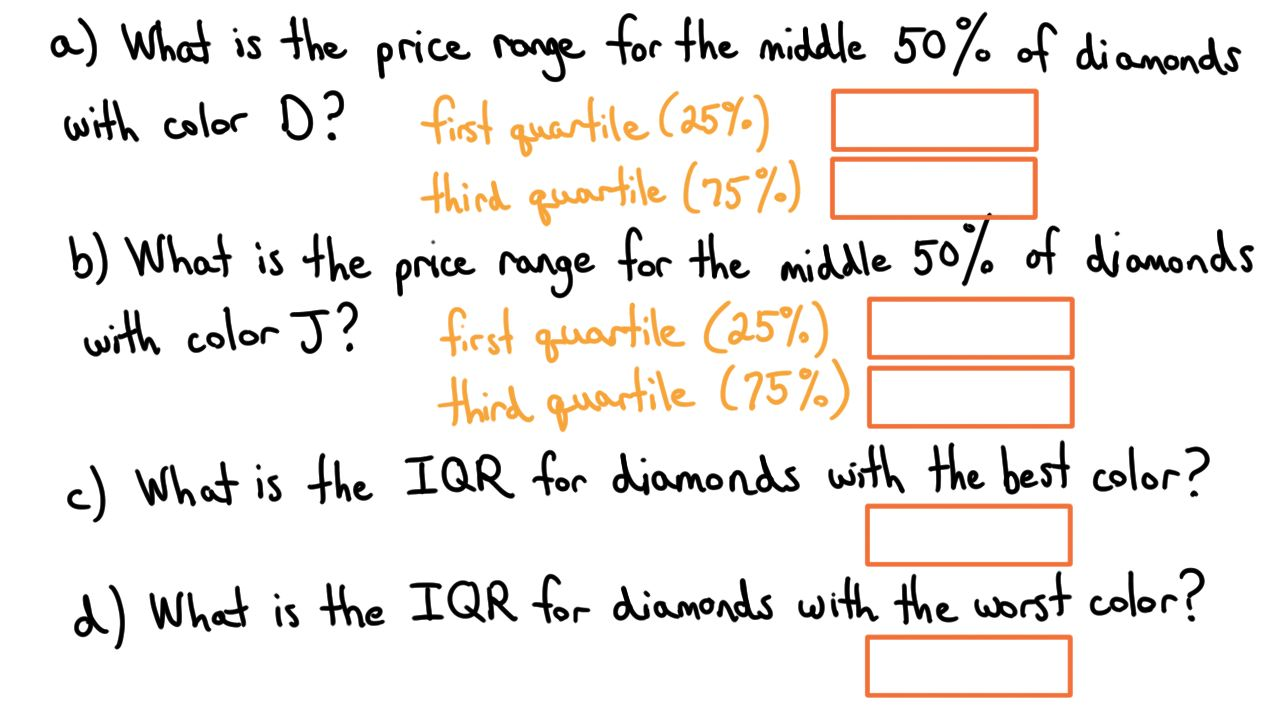 a) What is the price range for the middle 50% of diamonds
with color D? first quartile (25%)
third quartile (75%)
b) What is the price range for the middle 50% of diamonds
with color J? first quartile (25%)
third quartile (75%)
c) What is the IQR for diamonds with the best color?
d) What is the IQR for diamonds with the worst color?